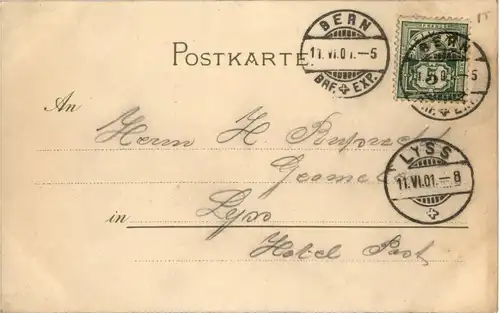 BERN
11.VI.01.–5
BRF. EXP.
POSTKARTE
BERN
5
11.VI.01.–5
BRF. EXP.
An
Herrn H. Ruprecht
LYSS
Geometer
11.VI.01.–8
in Lyss
Hotel Post